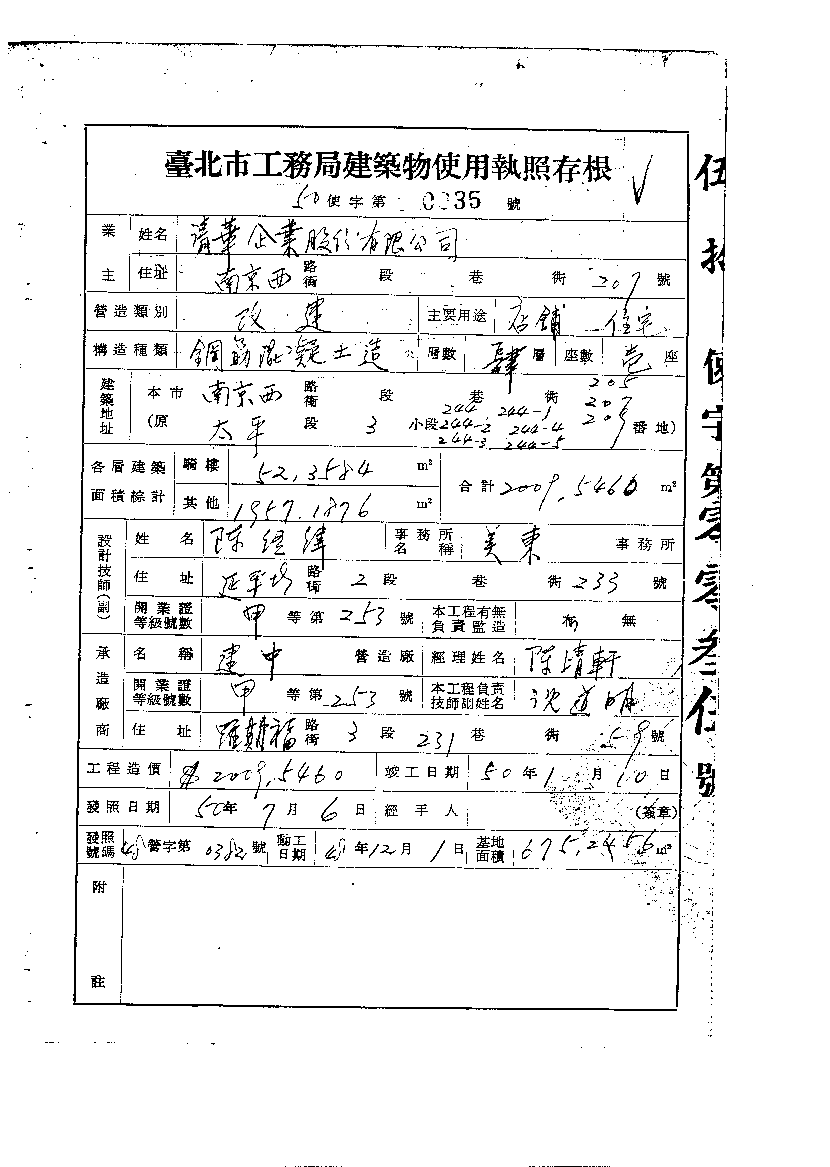 臺北市工務局建築物使用執照存根
50使字第0035號
業主 姓名 清華企業股份有限公司
住址 南京西 路街 段 巷 街 207 號
營造類別 改建 主要用途 店鋪 住宅
構造種類 鋼筋混凝土造 層數 肆層 座數 壱座
建築地址 本市 南京西 路街 段 巷 街 205 207 209
(原 太平 段 3 小段 244 244-1 244-2 244-4 244-3 244-5 番地)
各層建築面積綜計 騎樓 52.3584 m² 合計 2009.5460 m²
其他 1957.1876 m²
設計技師(副) 姓名 陳 事務所名稱 美東 事務所
住址 延平 路街 2段 巷 街 233 號
開業證等級號數 甲 等第 253 號 本工程有無負責監造 有 無
承造廠商 名稱 建中 營造廠 經理姓名 陳靖軒
開業證等級號數 甲 等第 253 號 本工程負責技師副姓名 沈道明
住址 羅斯福 路街 3段 231巷 街 59號
工程造價 2009.5460 竣工日期 50年1月10日
發照日期 50年7月6日 經手人 (簽章)
發照號碼 48營字第0382號 動工日期 48年12月1日 基地面積 675.2456 m²
附註
伍拾使字第零零叁伍號